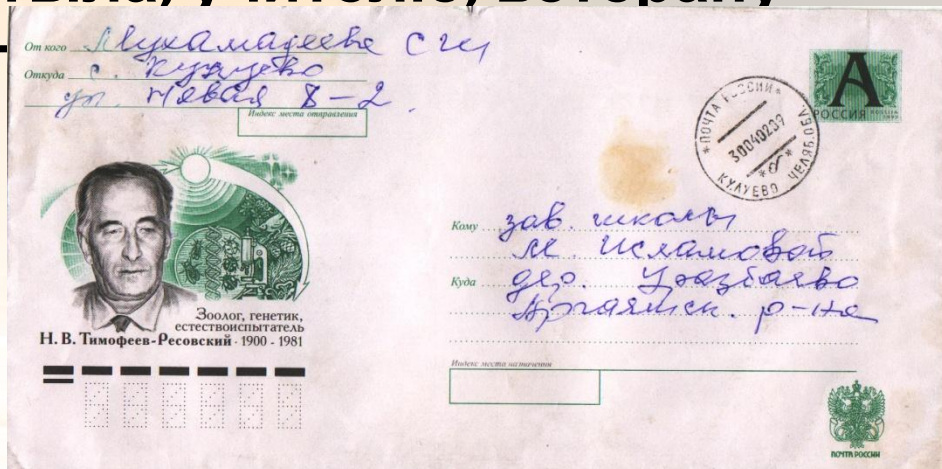 тыла, учителю, ветерану
От кого Мухамадеева С
Откуда с. Кулуево
ул. Новая 8-2
Индекс места отправления
А
РОССИЯ
ПОЧТА РОССИИ
КУЛУЕВО ЧЕЛЯБ.ОБЛ.
Кому зав. школы
М. Исламовой
Куда дер. Уразбаево
Аргаяшск. р-на
Зоолог, генетик,
естествоиспытатель
Н. В. Тимофеев-Ресовский · 1900 - 1981
Индекс места назначения
ПОЧТА РОССИИ